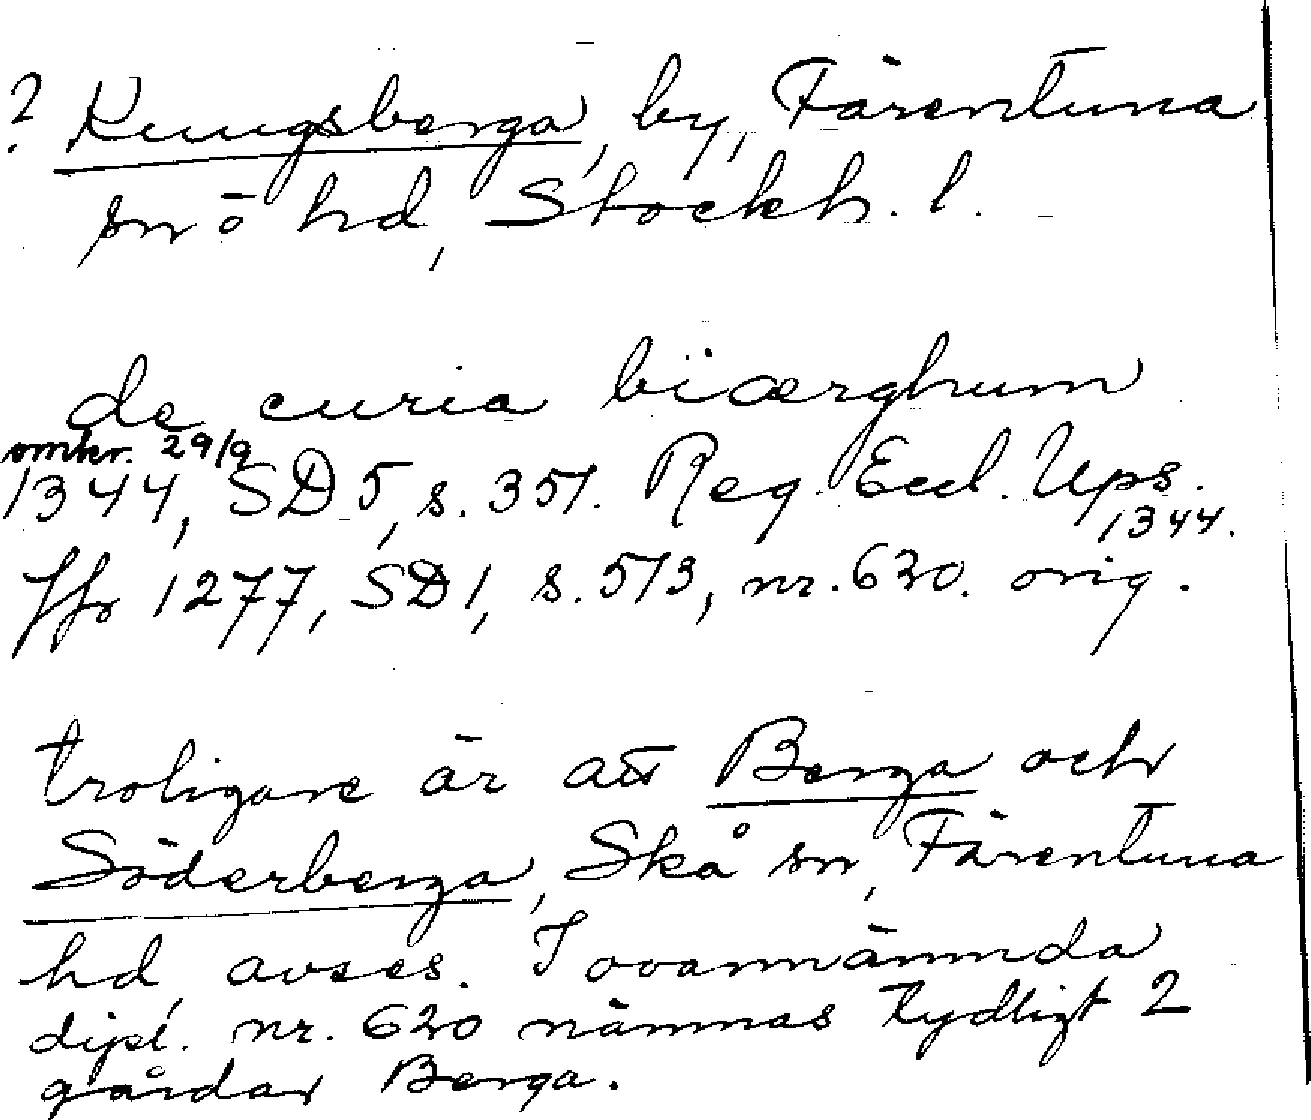 ? Kungsberga, by, Färentuna
sn o hd, Stockh. l.
de curia biærghum
omkr. 29/9
1344, SD 5, s. 351. Reg. Eccl. Ups.
1344.
Jfr 1277, SD 1, s. 513, nr. 620. orig.
troligare är att Berga och
Söderberga, Skå sn, Färentuna
hd, avses. I ovannämnda
dipl. nr. 620 nämnas tydligt 2
gårdar Berga.